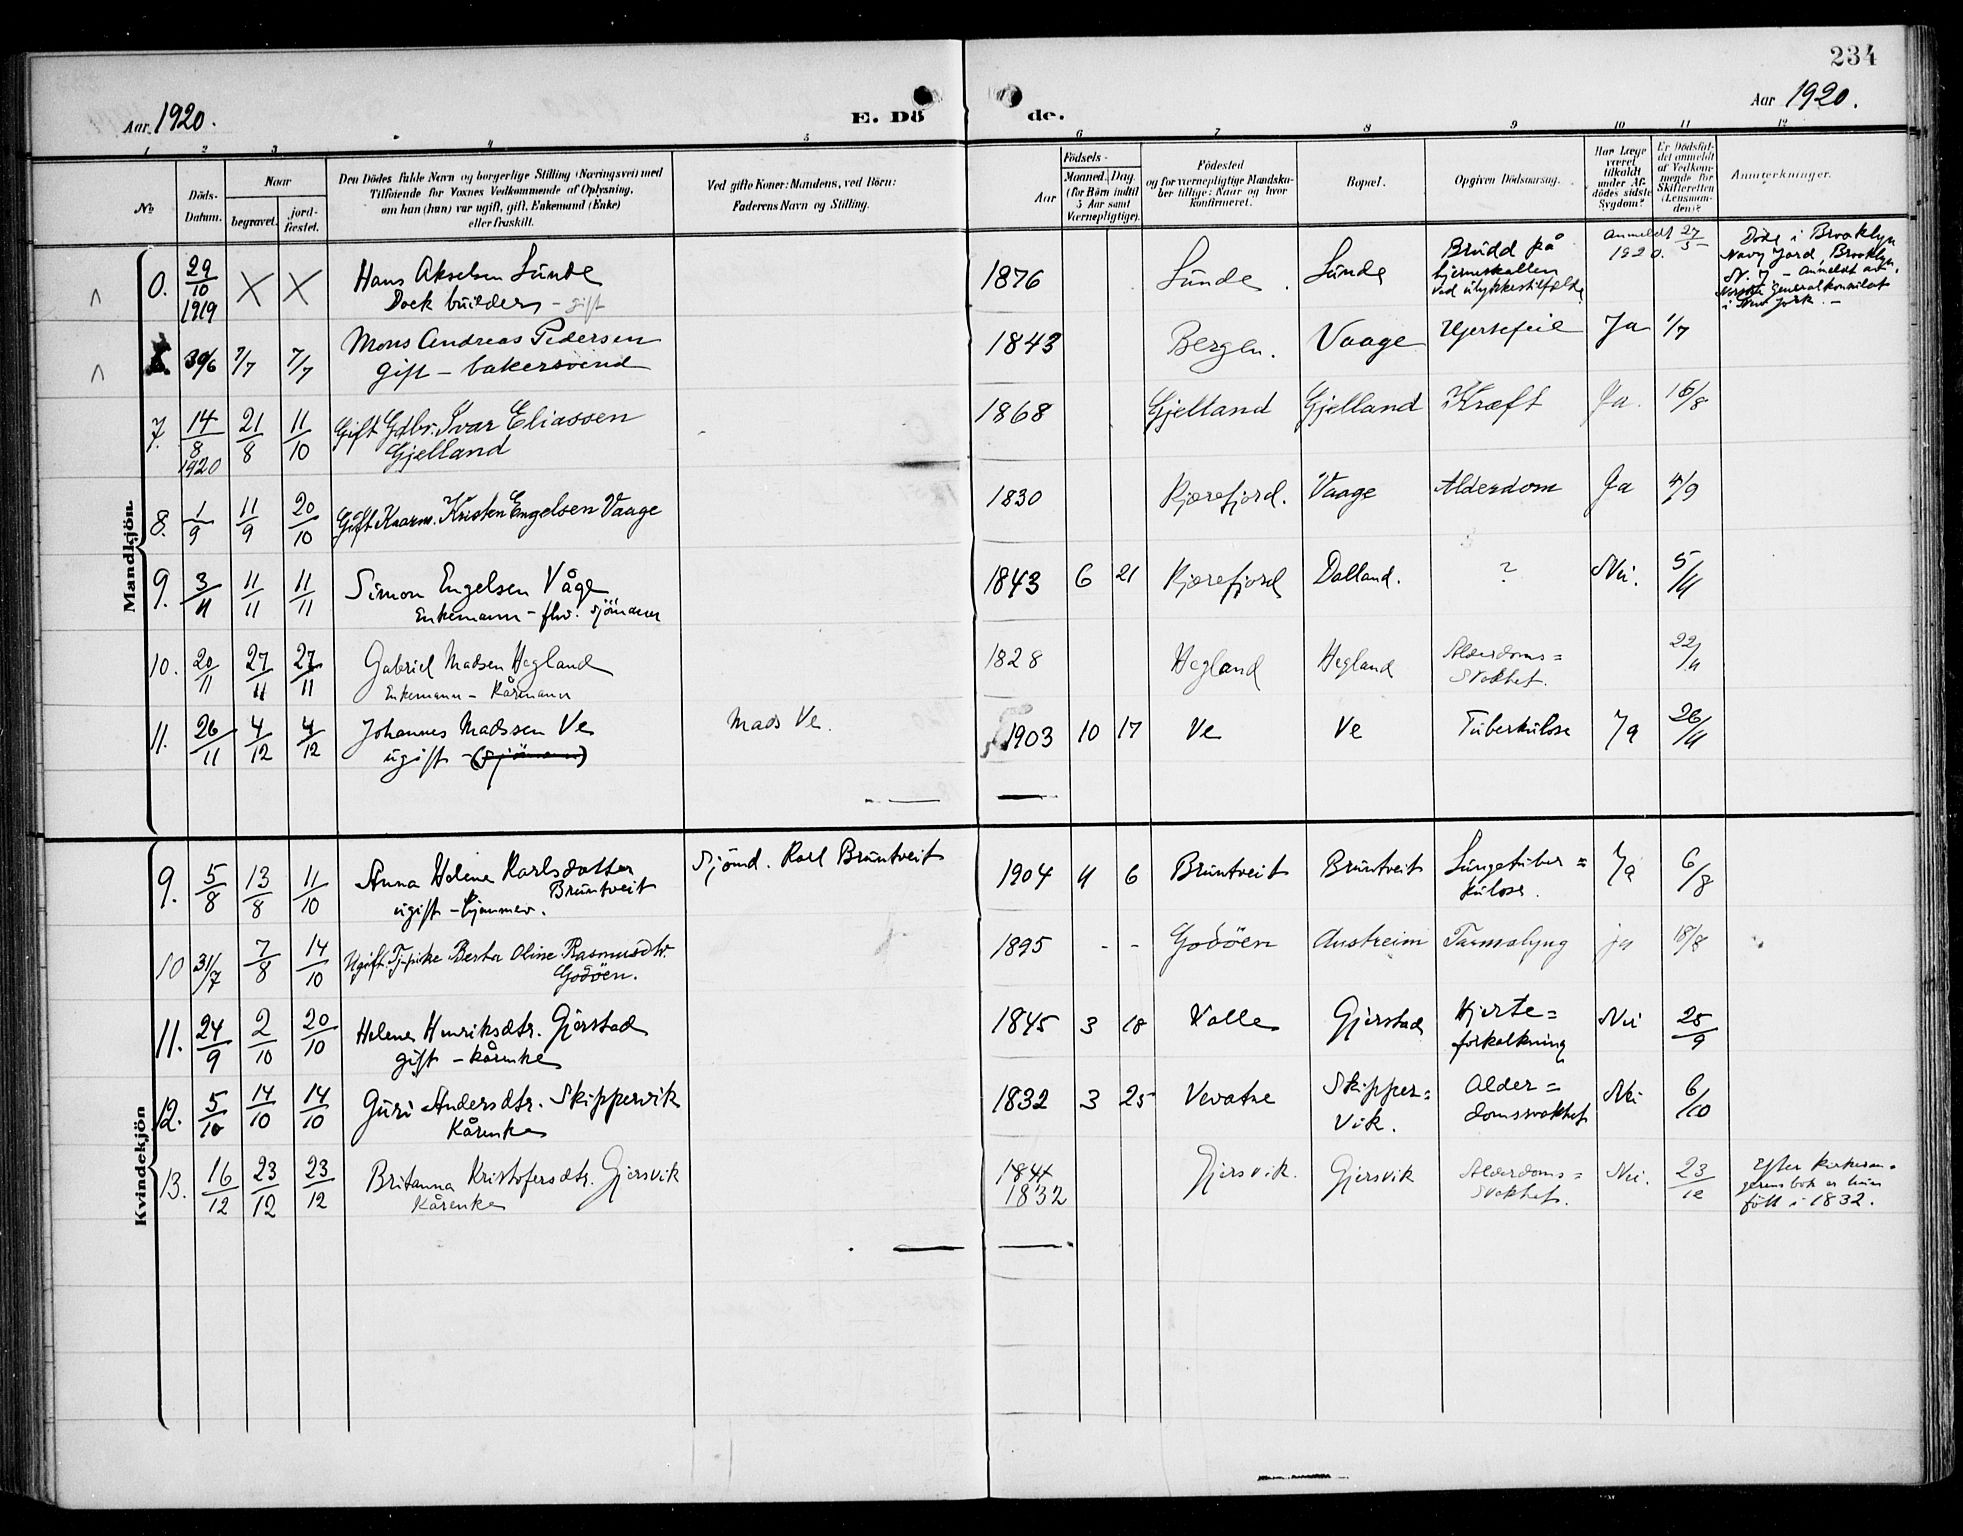 234
Aar 1920.
E. Dö
de.
Aar 1920.
1 2 3 4 5 6 7 8 9 10 11 12
No
Döds-
Datum.
Naar
begravet.
jord-
fæstet.
Den Dödes fulde Navn og borgerlige Stilling (Næringsvei) med
Tilföiende for Voxnes Vedkommende af Oplysning,
om han (hun) var ugift, gift, Enkemand (Enke)
eller fraskilt.
Ved gifte Koner: Mandens, ved Börn:
Faderens Navn og Stilling.
Födsels-
Aar
Maaned. Dag.
(for Börn indtil
5 Aar samt
Værnepligtige).
Födested
og for værnepligtige Mandska-
ber tillige: Naar og hvor
Konfirmeret.
Bopæl.
Opgiven Dödsaarsag.
Har Læge
været
tilkaldt
under Af-
dödes sidste
Sygdom?
Er Dödsfal-
det anmeldt
af Vedkom-
mende for
Skifteretten
(Lensman-
den)?
Anmærkninger.
Mandkjön.
0. 29/10 1919 X X Hans Akselsen Sunde
Dock builder - gift
1876 Sunde. Sunde
Brudd på
hjerneskallen
ved ulykkestilfælde
Anmeldt 27/5
1920.
Døde i Brooklyn
Navy Yard, Brooklyn,
N. Y - Anmeldt av
Norske generalkonsulat
i New York. -
30/6 7/7 7/7 Mons Andreas Pedersen
gift - bakersvend
1843 Bergen. Vaage Hjertefeil Ja 1/7
7. 14/8 1920 21/8 11/10 Gift Gdbr. Ivar Eliassen
Gjelland
1868 Gjelland Gjelland Kræft Ja. 16/8
8. 1/9 11/9 20/10 Gift Kaarm. Kristen Engelsen Vaage
1830 Kjærefjord. Vaage Alderdom Ja 4/9
9. 3/11 11/11 11/11 Simon Engelsen Våge
Enkemann - fhv. sjömann
1843 6 21 Kjærefjord Dalland. ? Nei. 5/11
10. 20/11 27/11 27/11 Gabriel Madsen Hegland
Enkemann - Kårmann
1828 Hegland Hegland Alderdoms=
svakhet. 22/11
11. 26/11 4/12 4/12 Johannes Madssen Ve
ugift - (sjömann)
Mads Ve.
1903 10 17 Ve Ve Tuberkulose Ja 26/11
Kvindekjön
9. 5/8 13/8 11/10 Anna Helene Karlsdatter
Bruntveit
ugift - hjemmev.
Sjömd. Karl Bruntveit
1904 4 6 Bruntveit Bruntveit Lungetuber=
kulose. Ja 6/8
10 31/7 7/8 14/10 Ugift. Tj.pike Berta Oline Rasmusdtr.
Godöen.
1895 - - Godöen Austreim Tarmslyng ja 18/8
11. 24/9 2/10 20/10 Helene Henriksdtr. Gjerstad
gift - kårenke
1845 3 18 Valle Gjerstad Hjerte=
forkalkning Nei 25/9
12. 5/10 14/10 14/10 Guri Andersdtr. Skippervik
Kårenke
1832 3 25 Vevatne Skipper=
vik. Alder=
domssvakhet Nei 6/10
13. 16/12 23/12 23/12 Britanna Kristofersdtr. Gjersvik
Kårenke
1844
1832
Gjersvik. Gjersvik Alderdoms=
svakhet. Nei. 23/12
Efter kirkesan-
gerens bok er hun
født i 1832.